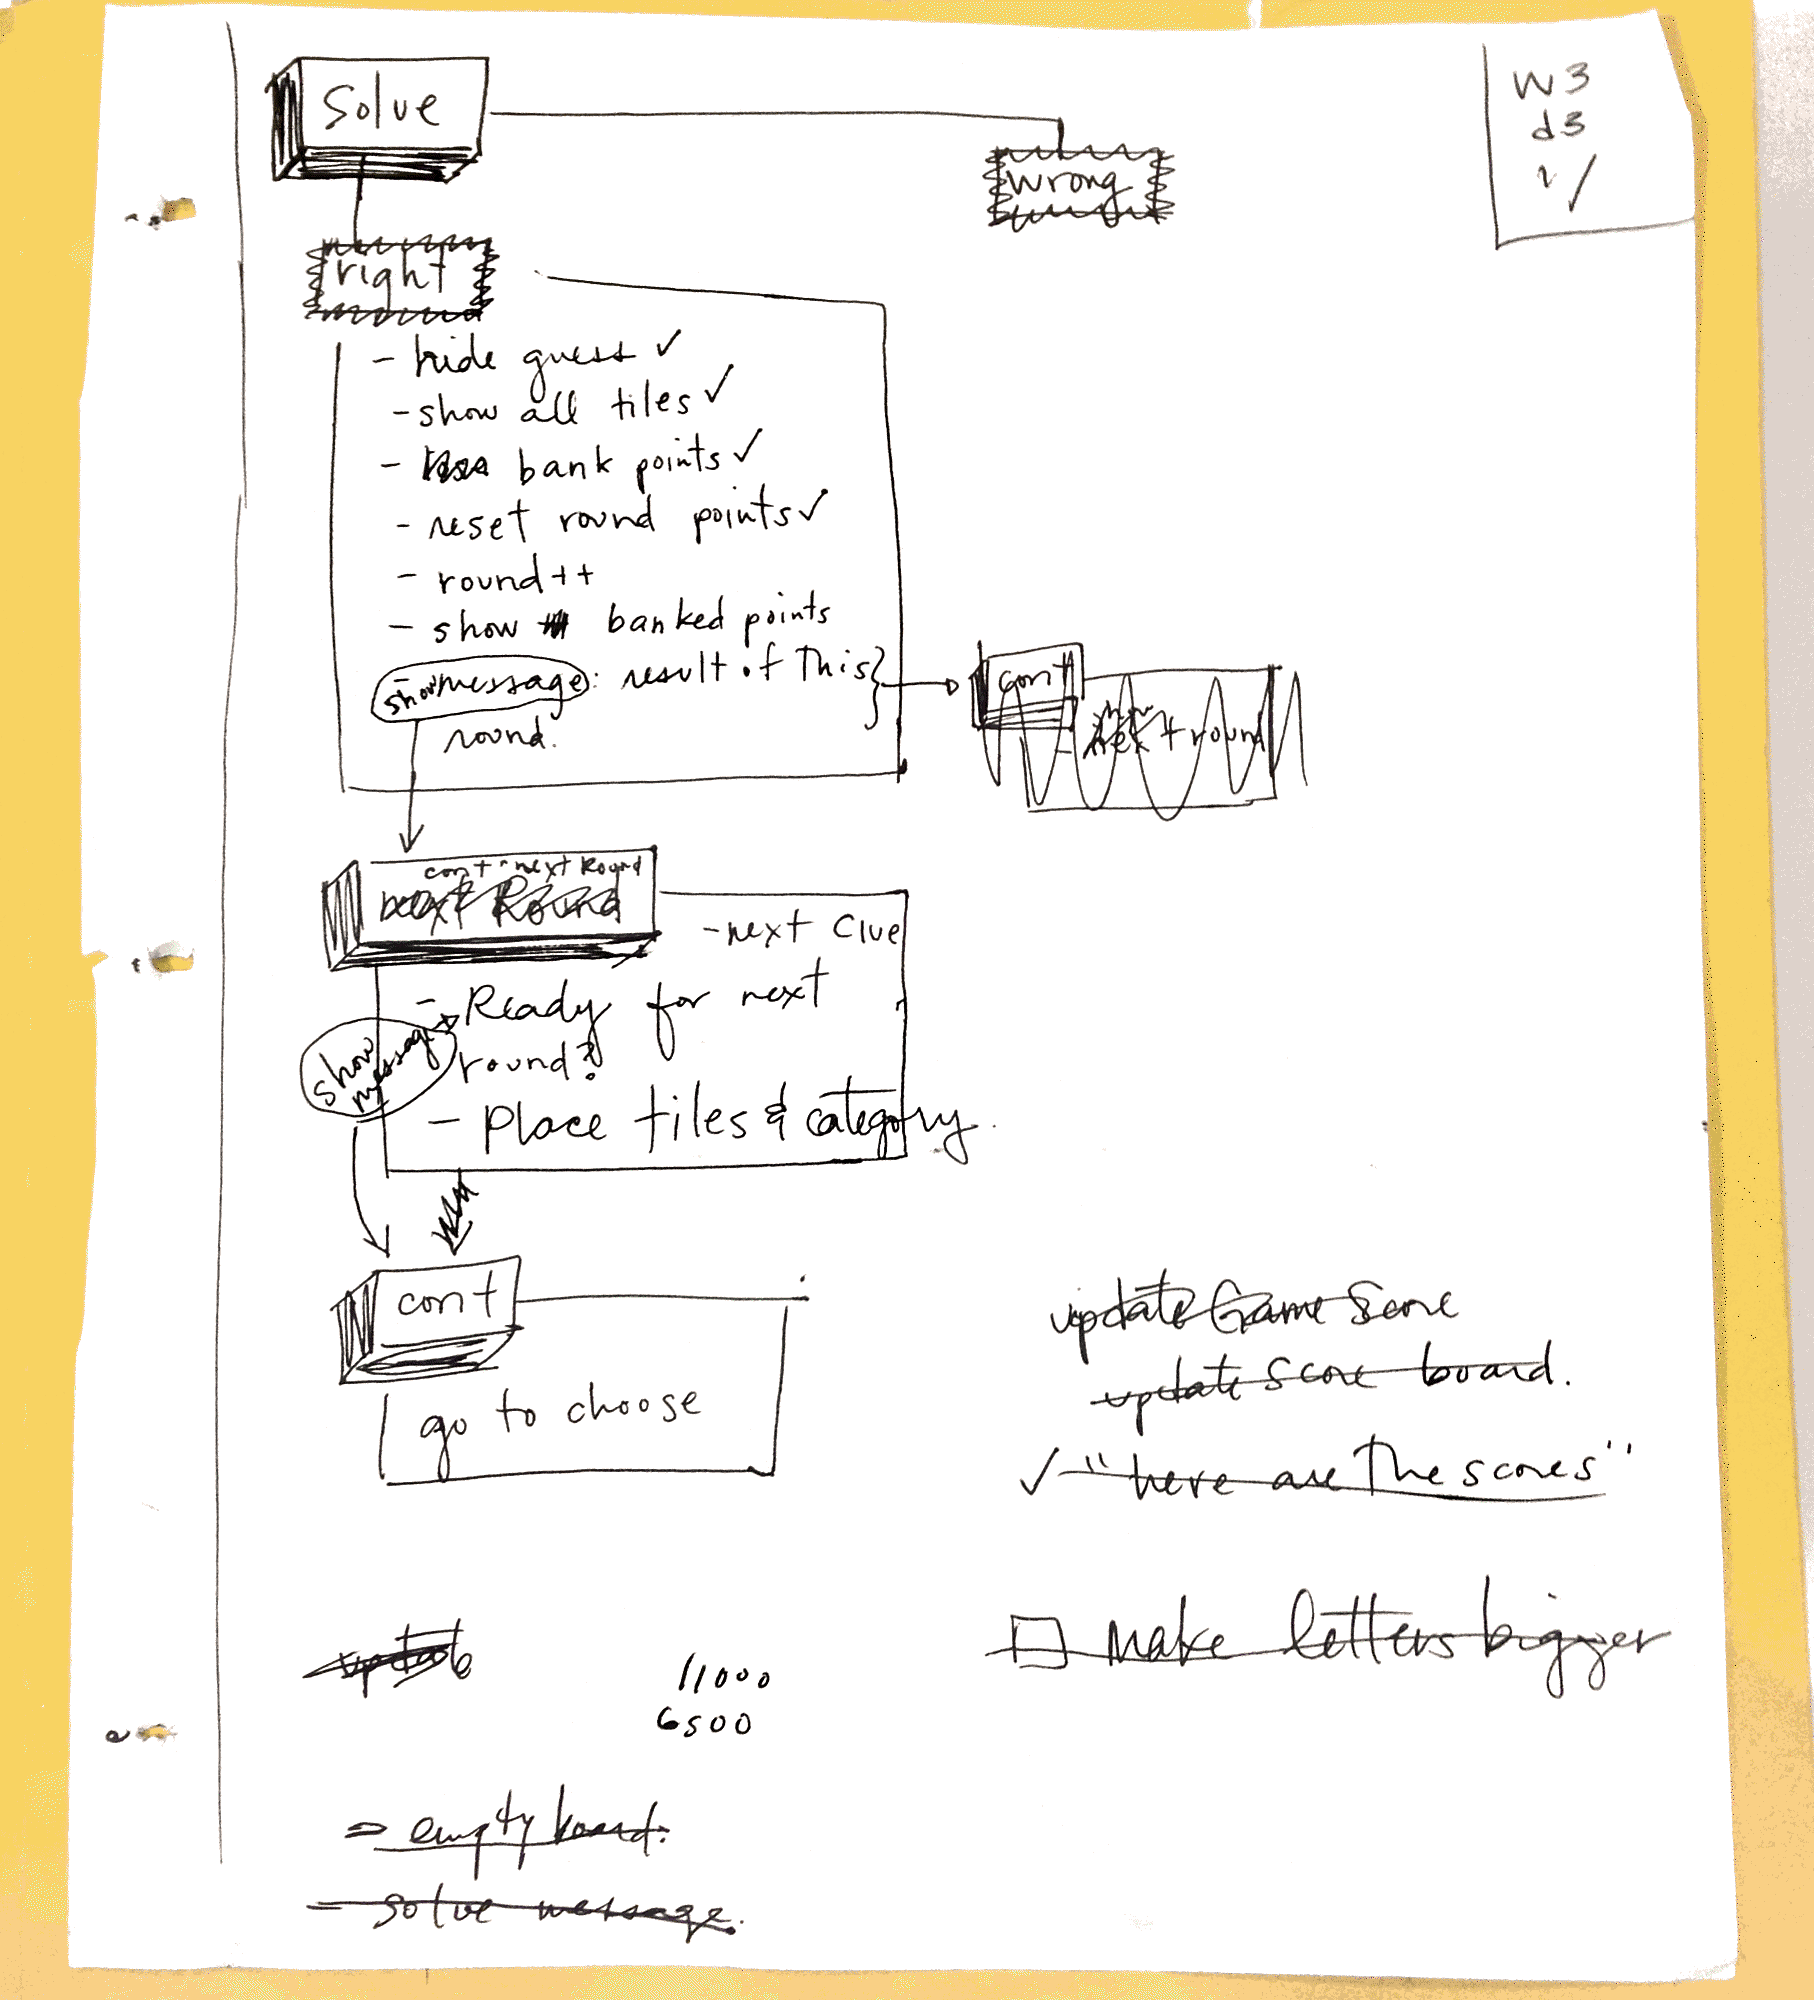 Solve
W3
d3
wrong
right
- hide guess ✓
- show all tiles ✓
- bank points ✓
- reset round points ✓
- round++
- show banked points
- show message: result of This
round.
cont
- next round
cont - next Round
next Round
- next Clue
- Ready for next
round?
show
message
- Place tiles & category.
cont
go to choose
update Game Score
update Score board.
✓ - "here are The scores"
□ Make letters bigger
update
11000
6500
- empty board.
- solve message.